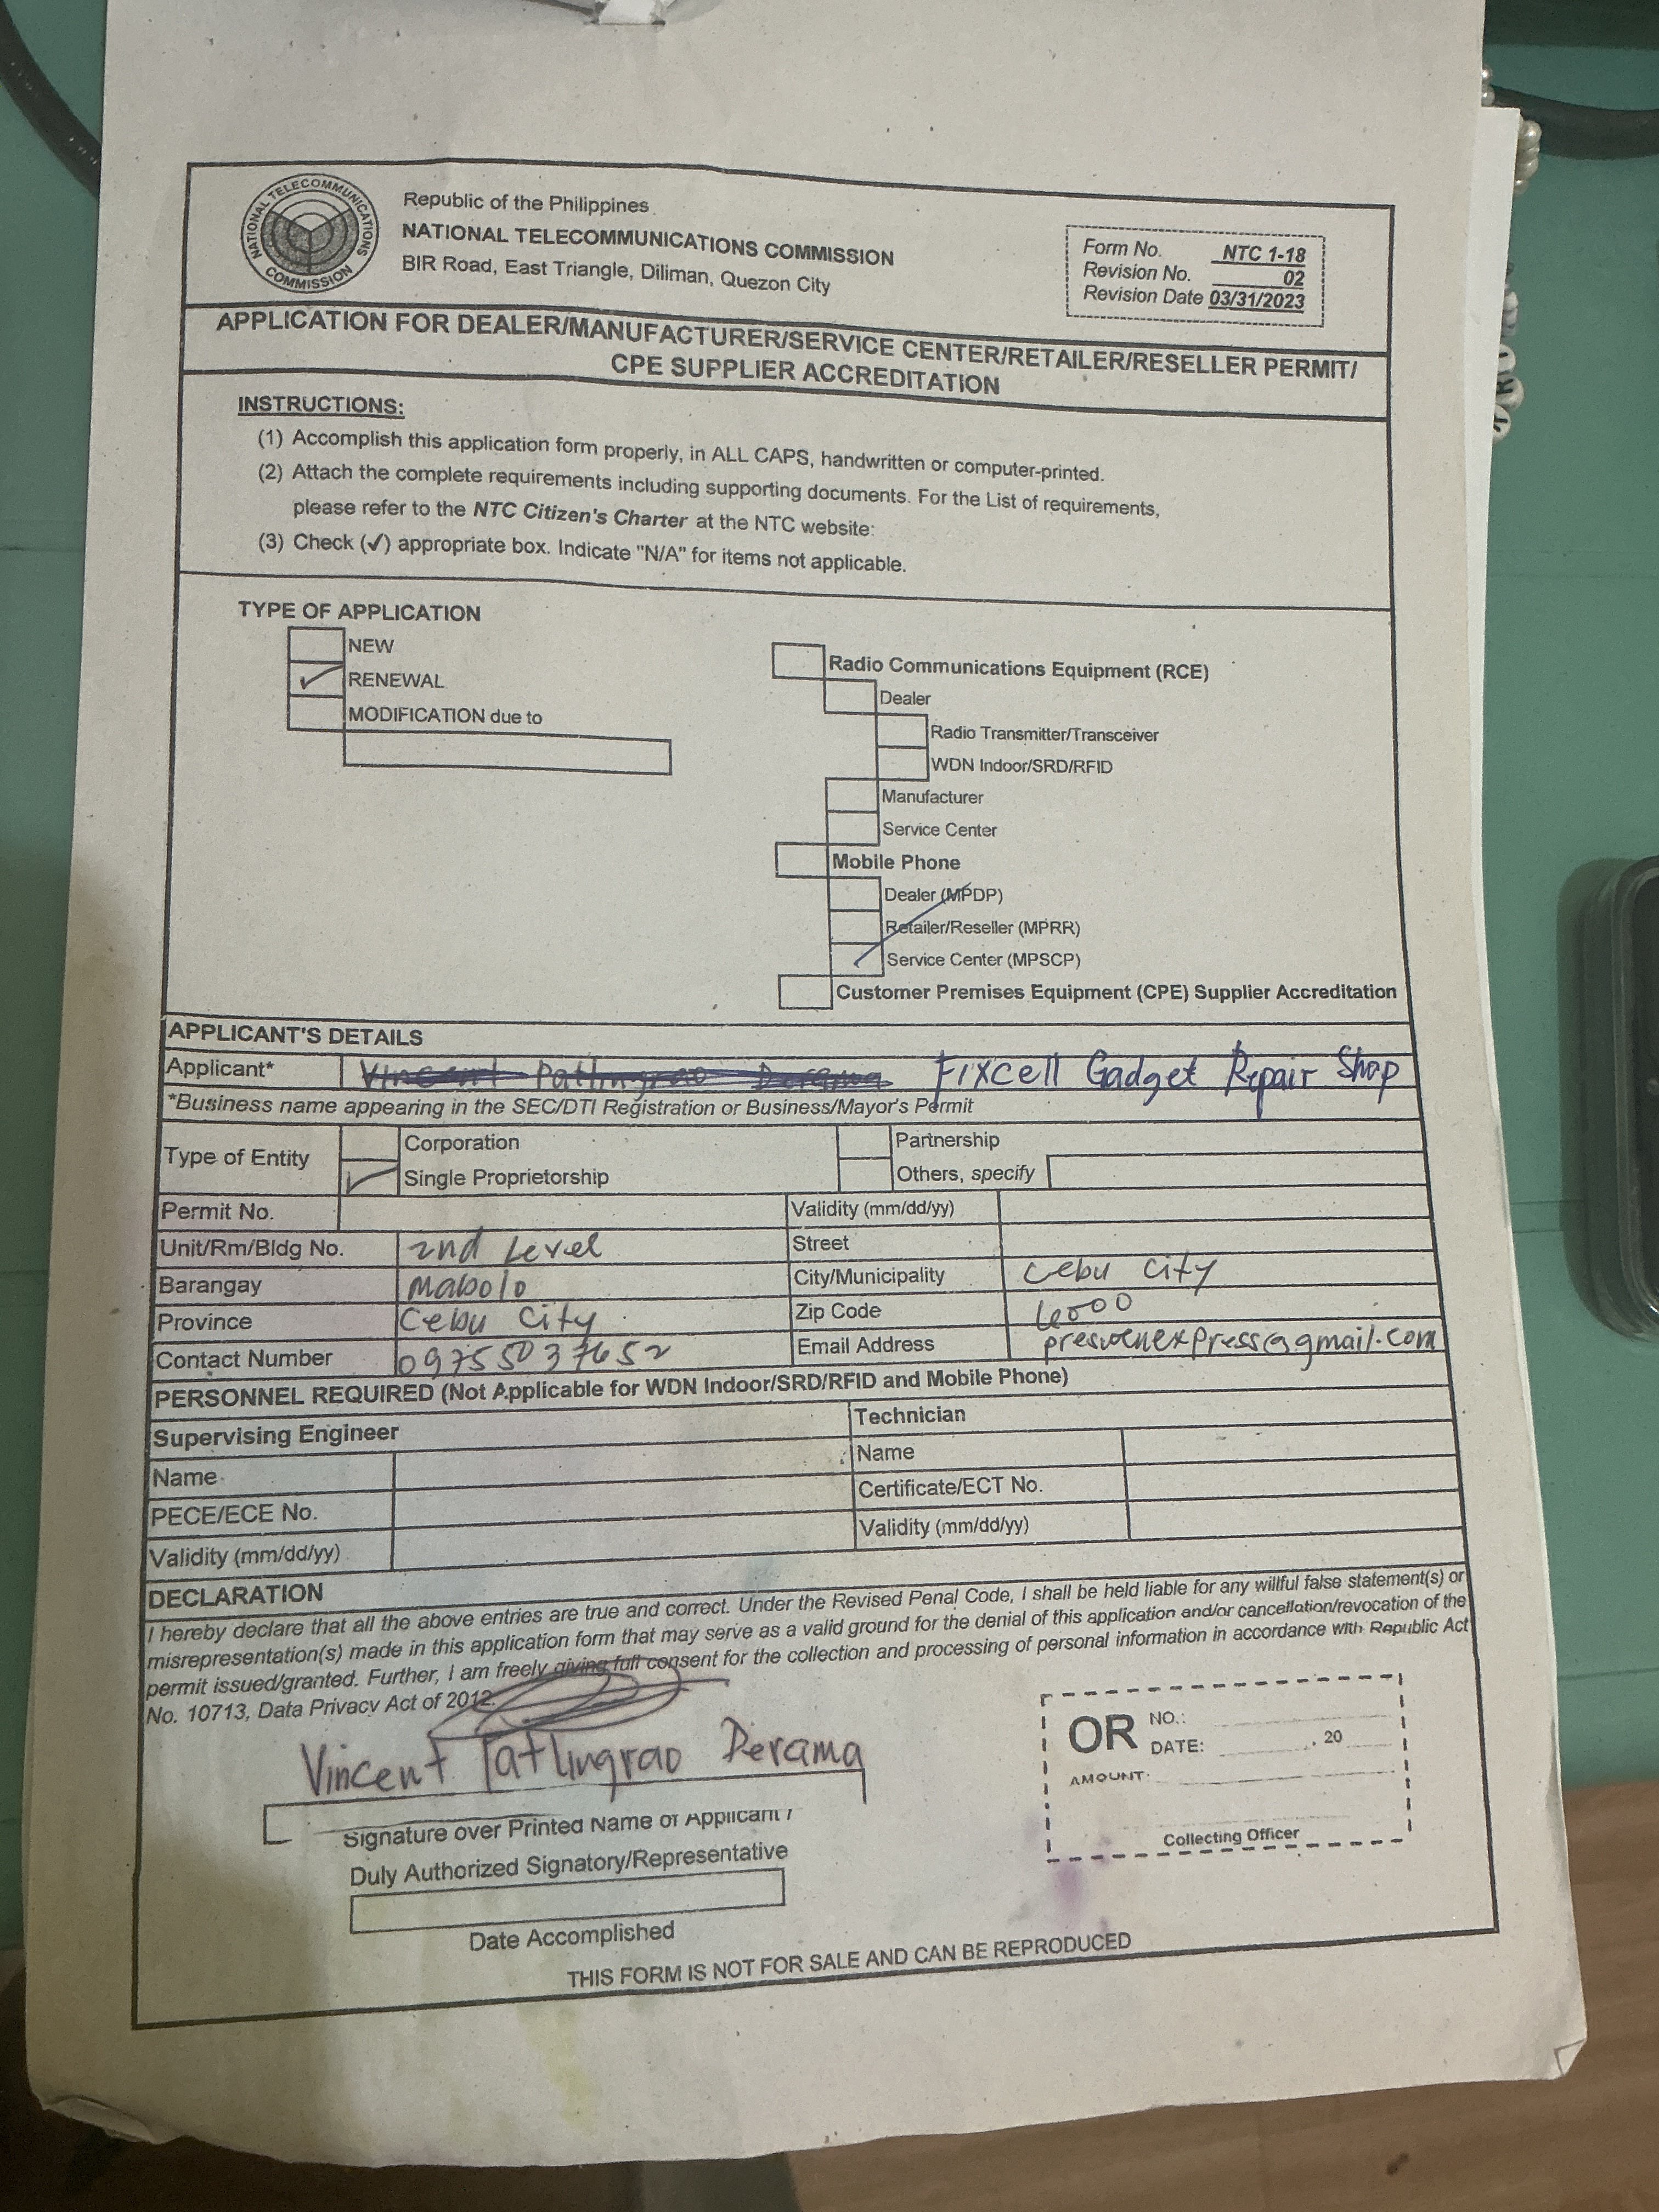 NATIONAL TELECOMMUNICATIONS COMMISSION
Republic of the Philippines
NATIONAL TELECOMMUNICATIONS COMMISSION
BIR Road, East Triangle, Diliman, Quezon City
Form No. NTC 1-18
Revision No. 02
Revision Date 03/31/2023
APPLICATION FOR DEALER/MANUFACTURER/SERVICE CENTER/RETAILER/RESELLER PERMIT/
CPE SUPPLIER ACCREDITATION
INSTRUCTIONS:
(1) Accomplish this application form properly, in ALL CAPS, handwritten or computer-printed.
(2) Attach the complete requirements including supporting documents. For the List of requirements,
please refer to the NTC Citizen's Charter at the NTC website:
(3) Check (✓) appropriate box. Indicate "N/A" for items not applicable.
TYPE OF APPLICATION
NEW
✓ RENEWAL
MODIFICATION due to
Radio Communications Equipment (RCE)
Dealer
Radio Transmitter/Transceiver
WDN Indoor/SRD/RFID
Manufacturer
Service Center
Mobile Phone
Dealer (MPDP)
Retailer/Reseller (MPRR)
✓ Service Center (MPSCP)
Customer Premises Equipment (CPE) Supplier Accreditation
APPLICANT'S DETAILS
Applicant* Vincent Patlingrao Derama Fixcell Gadget Repair Shop
*Business name appearing in the SEC/DTI Registration or Business/Mayor's Permit
Type of Entity
Corporation
Partnership
✓ Single Proprietorship
Others, specify
Permit No. Validity (mm/dd/yy)
Unit/Rm/Bldg No. 2nd Level Street
Barangay Mabolo City/Municipality Cebu City
Province Cebu City Zip Code 6000
Contact Number 09755037652 Email Address @gmail.com
PERSONNEL REQUIRED (Not Applicable for WDN Indoor/SRD/RFID and Mobile Phone)
Supervising Engineer Technician
Name Name
PECE/ECE No. Certificate/ECT No.
Validity (mm/dd/yy) Validity (mm/dd/yy)
DECLARATION
I hereby declare that all the above entries are true and correct. Under the Revised Penal Code, I shall be held liable for any willful false statement(s) or
misrepresentation(s) made in this application form that may serve as a valid ground for the denial of this application and/or cancellation/revocation of the
permit issued/granted. Further, I am freely giving full consent for the collection and processing of personal information in accordance with Republic Act
No. 10713, Data Privacy Act of 2012.
Vincent Patlingrao Derama
Signature over Printed Name of Applicant /
Duly Authorized Signatory/Representative
Date Accomplished
OR NO.:
DATE: , 20
AMOUNT:
Collecting Officer
THIS FORM IS NOT FOR SALE AND CAN BE REPRODUCED